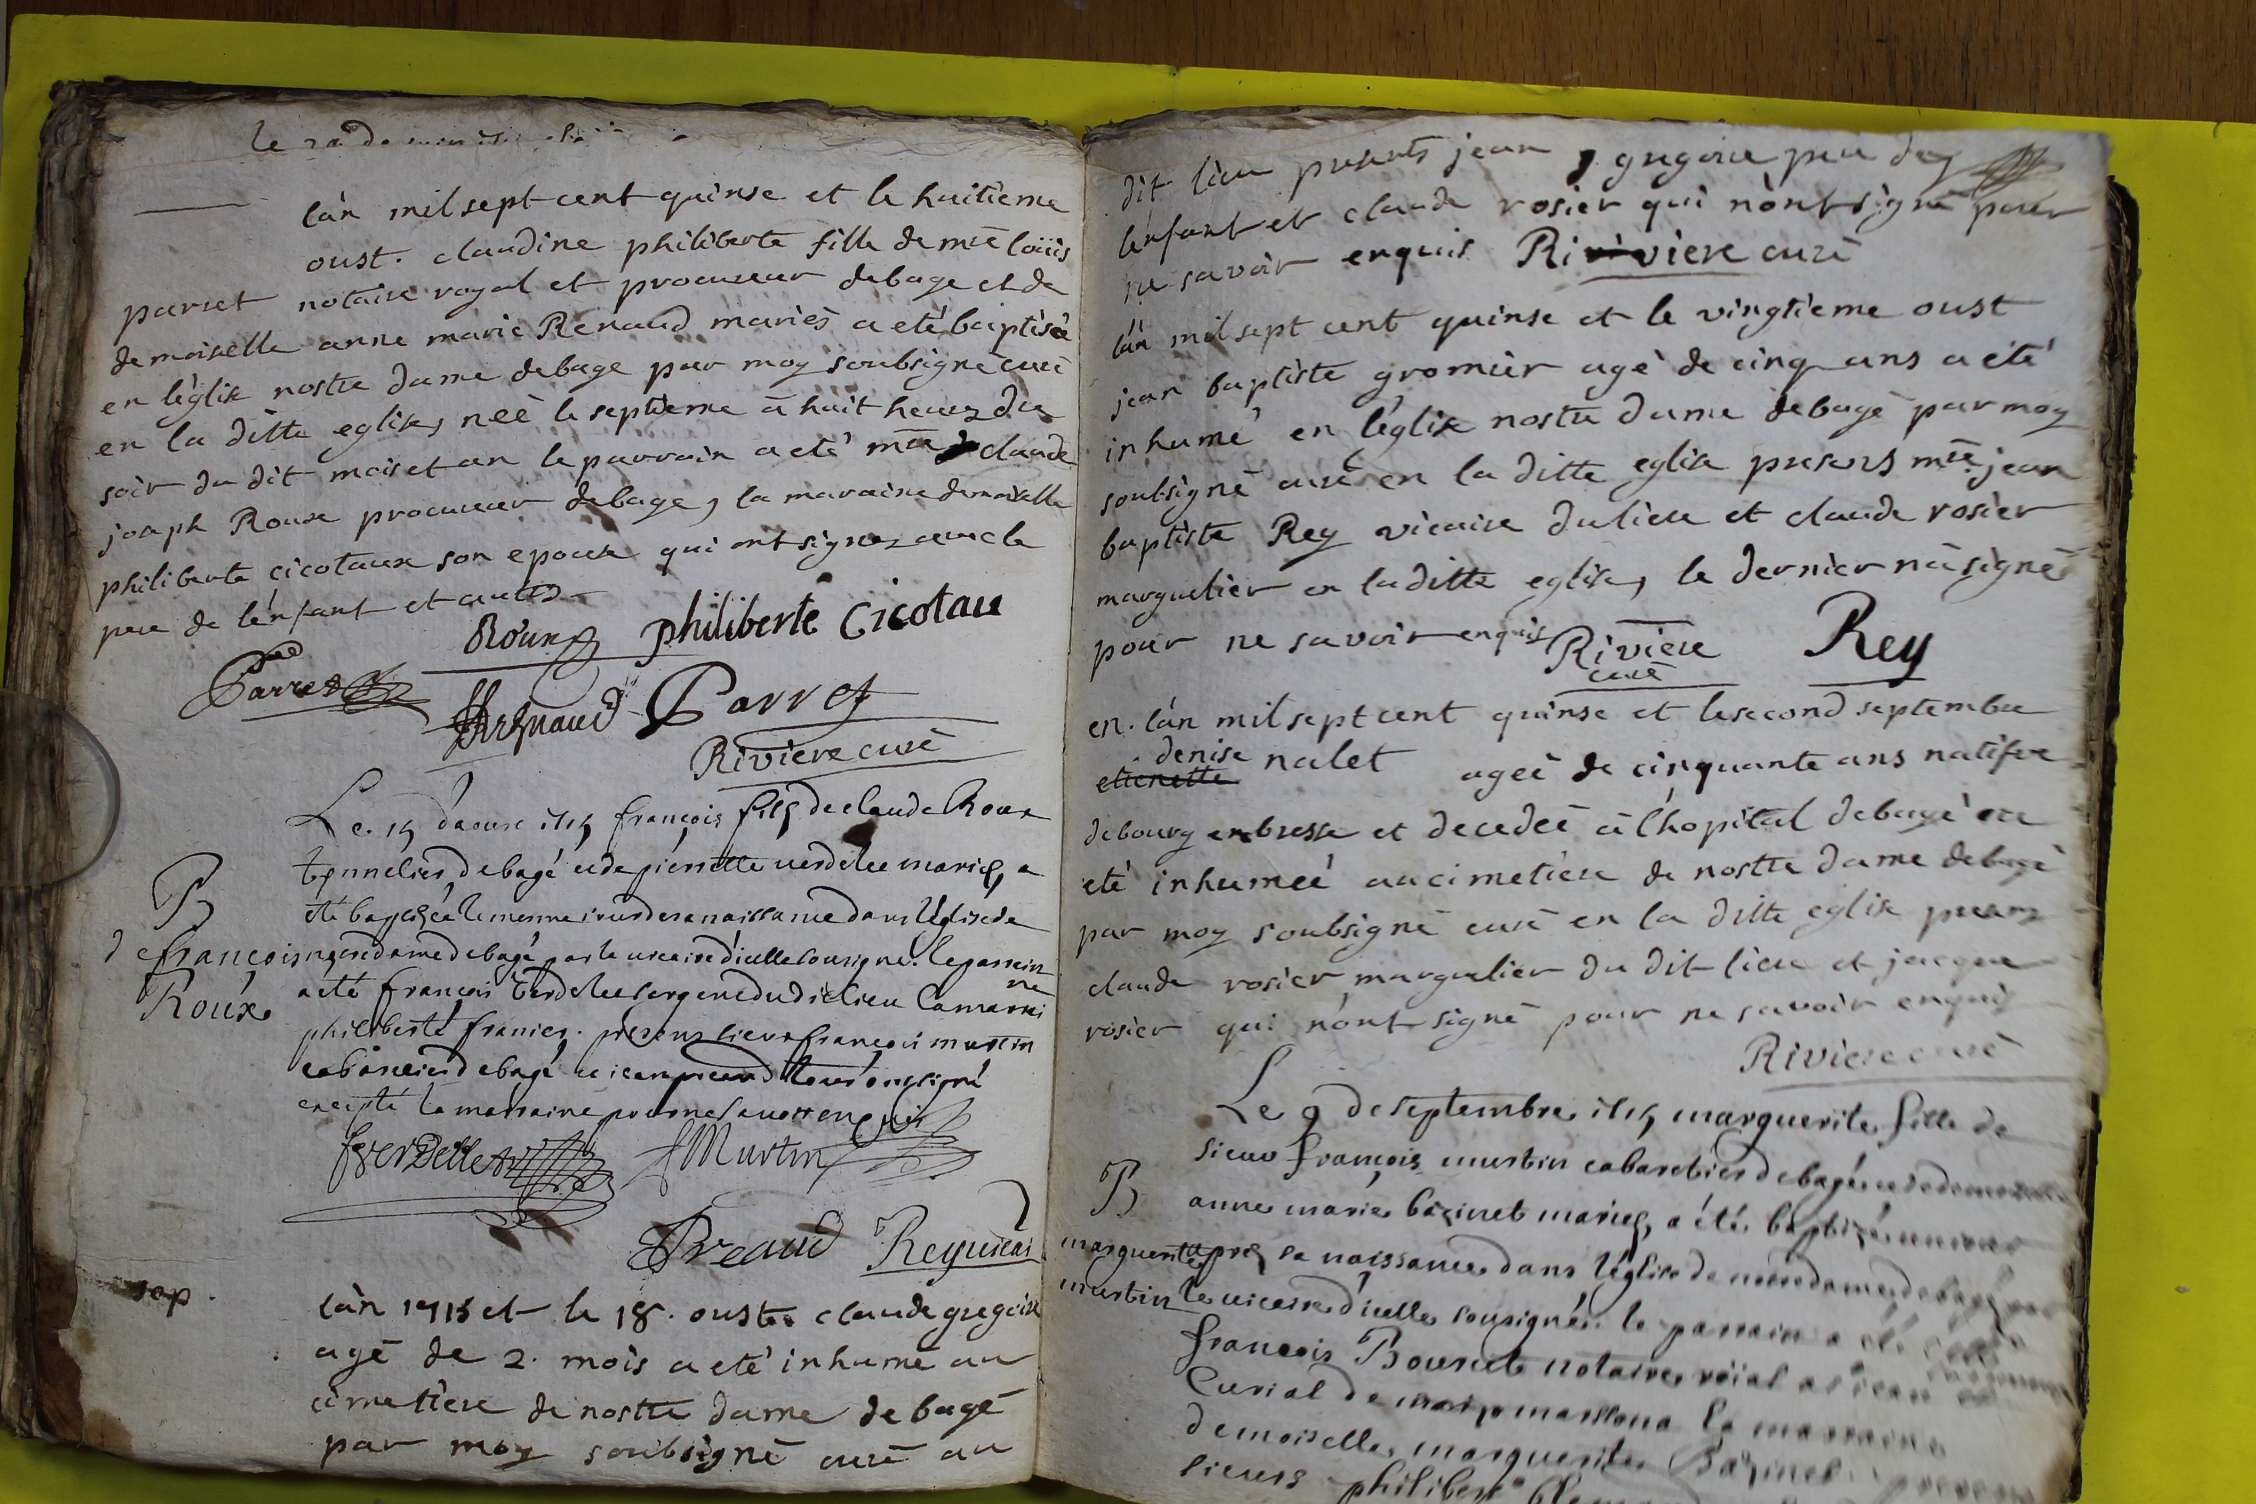 le
lan mil sept cent quinse et le huitieme
oust. claudine philiberte fille de mre loüis
parret notaire royal et procureur debage et de
demoiselle anne marie Renaud mariès a eté baptisèe
en lèglise nostre dame debage par moy soubsignè curè
en la ditte eglise, neè le septieme à huit heures du
soir du dit mois et an le parrain a eté mre claude
joseph Roux procureur debage, la maraine demoiselle
philiberte cicotaux son epouse qui ont signez avec le
pere de lenfant et autes
Roux philiberte Cicotau
Parret
Renaud Parret
Riviere curè
Le 15 daoust 1715 françois fils de claude Roux
tonnelier debagé et de pierrette verdelet mariés, a
été baptisé le mesme jour de sa naissance dans l'église de
B
de françois
Roux
nostre dame debagé par le vicaire d'icelle sousigné. le parrain
a été françois Verdelet sergent dudit lieu la marrai
ne
philiberte franier. presens sieur françois martin
cabaretier debagé et tous ont signé
excepté la marraine pour ne savoir enquis
fverdellet fMartin
Breaud Rey vicai
sep.
làn 1715 et le 18. oust claude gregoire
agè de 2. mois a eté inhumè au
cimetiere de nostre dame de bagé
par moy soubsignè curè au
dit lieu presents jean gregoire pere de
lenfant et claude rosier qui nònt signè pour
ne savoir enquis Riviviere curè
làn mil sept cent quinse et le vingtieme oust
jean baptiste gromier agè de cinq ans a eté
inhumé en lèglise nostre dame debagè par moy
soubsignè curè en la ditte eglise presens mre jean
baptiste Rey vicaire du lieu et claude rosier
marguelier en la ditte eglise, le dernier nà signè
pour ne savoir enquis Riviere Rey
curè
en. làn mil sept cent quinse et le second septembre
denise
etienette nalet ageè de cinquante ans natifve
de bourg en bresse et decedeè à lhopital debagè a
eté inhumeè au cimetiere de nostre dame debagè
par moy soubsignè curè en la ditte eglise presens
claude rosier marguelier du dit lieu et jacque
rosier qui nònt signè pour ne savoir enquis
Riviere curè
Le 9 de septembre 1715 marguerite fille de
sieur françois martin cabaretier debagé et de demoiselle
B
marguerite
martin
anne marie bazinet mariés, a été baptizée
aprés sa naissance dans l'église de nostre dame debagé par
le vicaire d'icelle sousigné. le parrain a été
françois Bourcet notaire roial
Curial de la marraine
demoiselle marguerite Bazinet
sieurs philibert